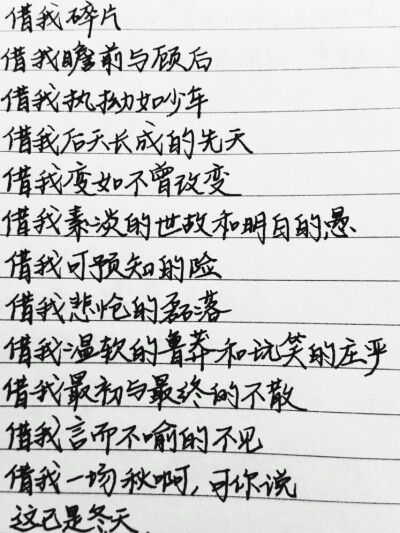 借我碎片
借我瞻前与顾后
借我执拗如少年
借我后天长成的先天
借我变如不曾改变
借我素淡的世故和明白的愚
借我可预知的险
借我悲怆的磊落
借我温软的鲁莽和玩笑的庄严
借我最初与最终的不敢
借我言而不喻的不见
借我一场秋啊,可你说
这已是冬天